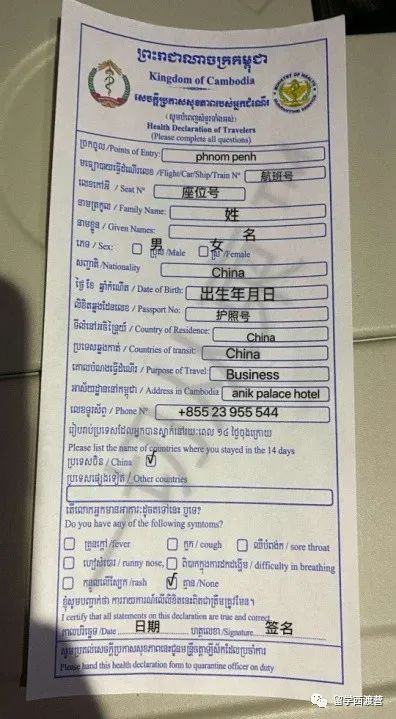 ព្រះរាជាណាចក្រកម្ពុជា
Kingdom of Cambodia
MINISTRY OF HEALTH
សេចក្តីប្រកាសសុខភាពរបស់អ្នកដំណើរ
(សូមបំពេញសំនួរទាំងអស់)
Health Declaration of Travelers
(Please complete all questions)
ច្រកចូល /Points of Entry: phnom penh
មធ្យោបាយធ្វើដំណើរលេខ /Flight/Car/Ship/Train Nº 航班号
លេខកៅអី / Seat Nº 座位号
នាមត្រកូល / Family Name: 姓
នាមខ្លួន / Given Names: 名
ភេទ / Sex: 男 ប្រុស /Male 女 ស្រី /Female
សញ្ជាតិ/Nationality China
ថ្ងៃ ខែ ឆ្នាំកំណើត / Date of Birth: 出生年月日
លិខិតឆ្លងដែនលេខ / Passport No: 护照号
ទីលំនៅអចិន្ត្រៃយ៍ / Country of Residence: China
ប្រទេសឆ្លងកាត់ / Countries of transit: China
គោលបំណងធ្វើដំណើរ / Purpose of Travel: Business
អាស័យដ្ឋាននៅកម្ពុជា / Address in Cambodia anik palace hotel
លេខទូរស័ព្ទ / Phone Nº +855 23 955 544
រៀបរាប់ប្រទេសដែលអ្នកបានស្នាក់នៅរយៈពេល ១៤ ថ្ងៃចុងក្រោយ
Please list the name of countries where you stayed in the 14 days
ប្រទេសចិន / China ✓
ប្រទេសផ្សេងទៀត / Other countries
តើលោកអ្នកមានអាការៈដូចតទៅនេះ ឬទេ?
Do you have any of the following symtoms?
គ្រុនក្តៅ /fever ក្អក / cough ឈឺបំពង់ក / sore throat
ហៀរសំបោរ / runny nose, ពិបាកក្នុងការដកដង្ហើម / difficulty in breathing
កន្ទួលលើស្បែក /rash ✓ គ្មាន /None
ខ្ញុំសូមបញ្ជាក់ថា ការរាយការណ៍លើលិខិតនេះពិតជាត្រឹមត្រូវមែន។
I certify that all statements on this declaration are true and correct
កាលបរិច្ឆេទ /Date 日期 ហត្ថលេខា /Signature 签名
សូមប្រគល់សេចក្តីប្រកាសសុខភាពនេះជូនមន្ត្រីចត្តាឡីស័កដែលប្រចាំការ
Please hand this health declaration form to quarantine officer on duty
留学西渡营